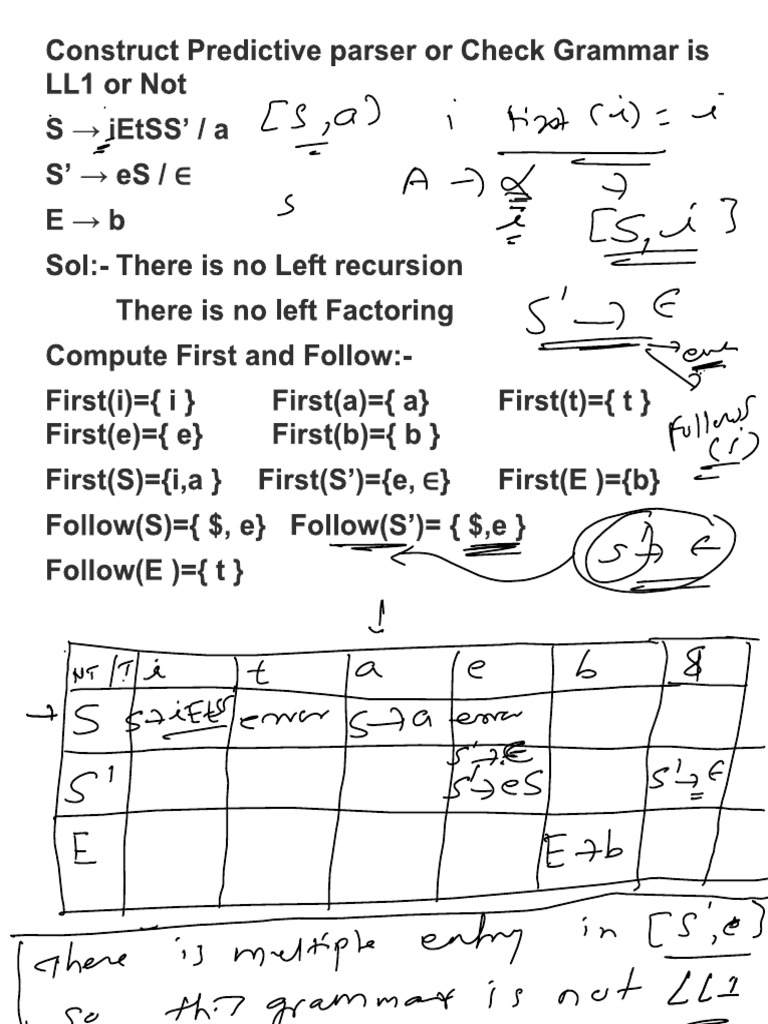 Construct Predictive parser or Check Grammar is
LL1 or Not
S → iEtSS' / a
[S,a) i first (i) = i
S' → eS / ∈
A → α
i
s
[S, i]
E → b
Sol:- There is no Left recursion
There is no left Factoring
S' → ∈
Compute First and Follow:-
First(i)={ i } First(a)={ a} First(t)={ t }
Follows
(s)
First(e)={ e} First(b)={ b }
First(S)={i,a } First(S')={e, ∈} First(E )={b}
Follow(S)={ $, e} Follow(S')= { $,e }
S' → ∈
Follow(E )={ t }
NT /T i t a e b $
S S→iEtSS' error S→a error
S' S'→∈ S'→eS S'→∈
E E→b
There is multiple entry in [S',e]
So this grammar is not LL1